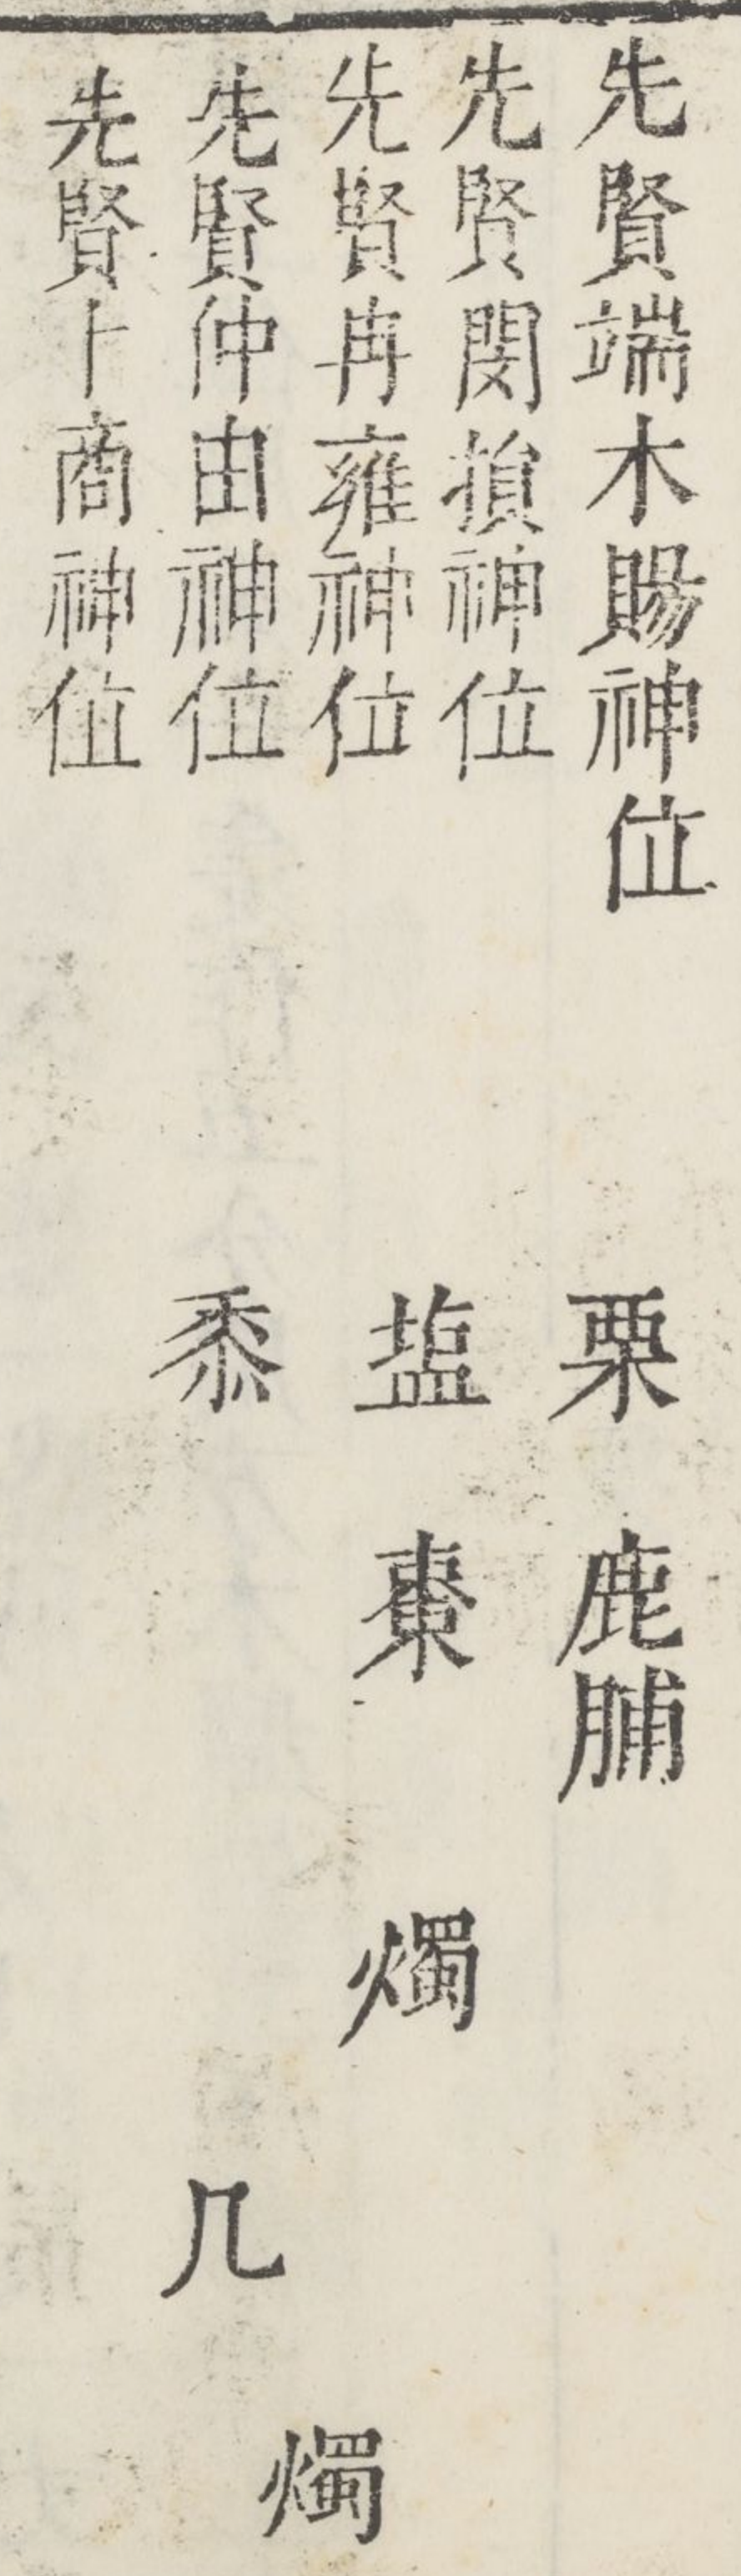 先賢端木賜神位
先賢閔損神位
先賢冉雍神位
先賢仲由神位
先賢卜商神位
栗 鹿脯
塩 棗 燭
黍 几
燭